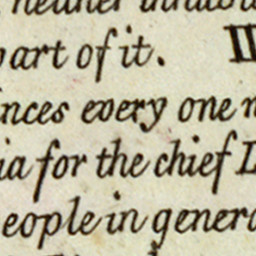 neither inhabit
part of it. II
nces every one n
ia for the chief L
eople in genera